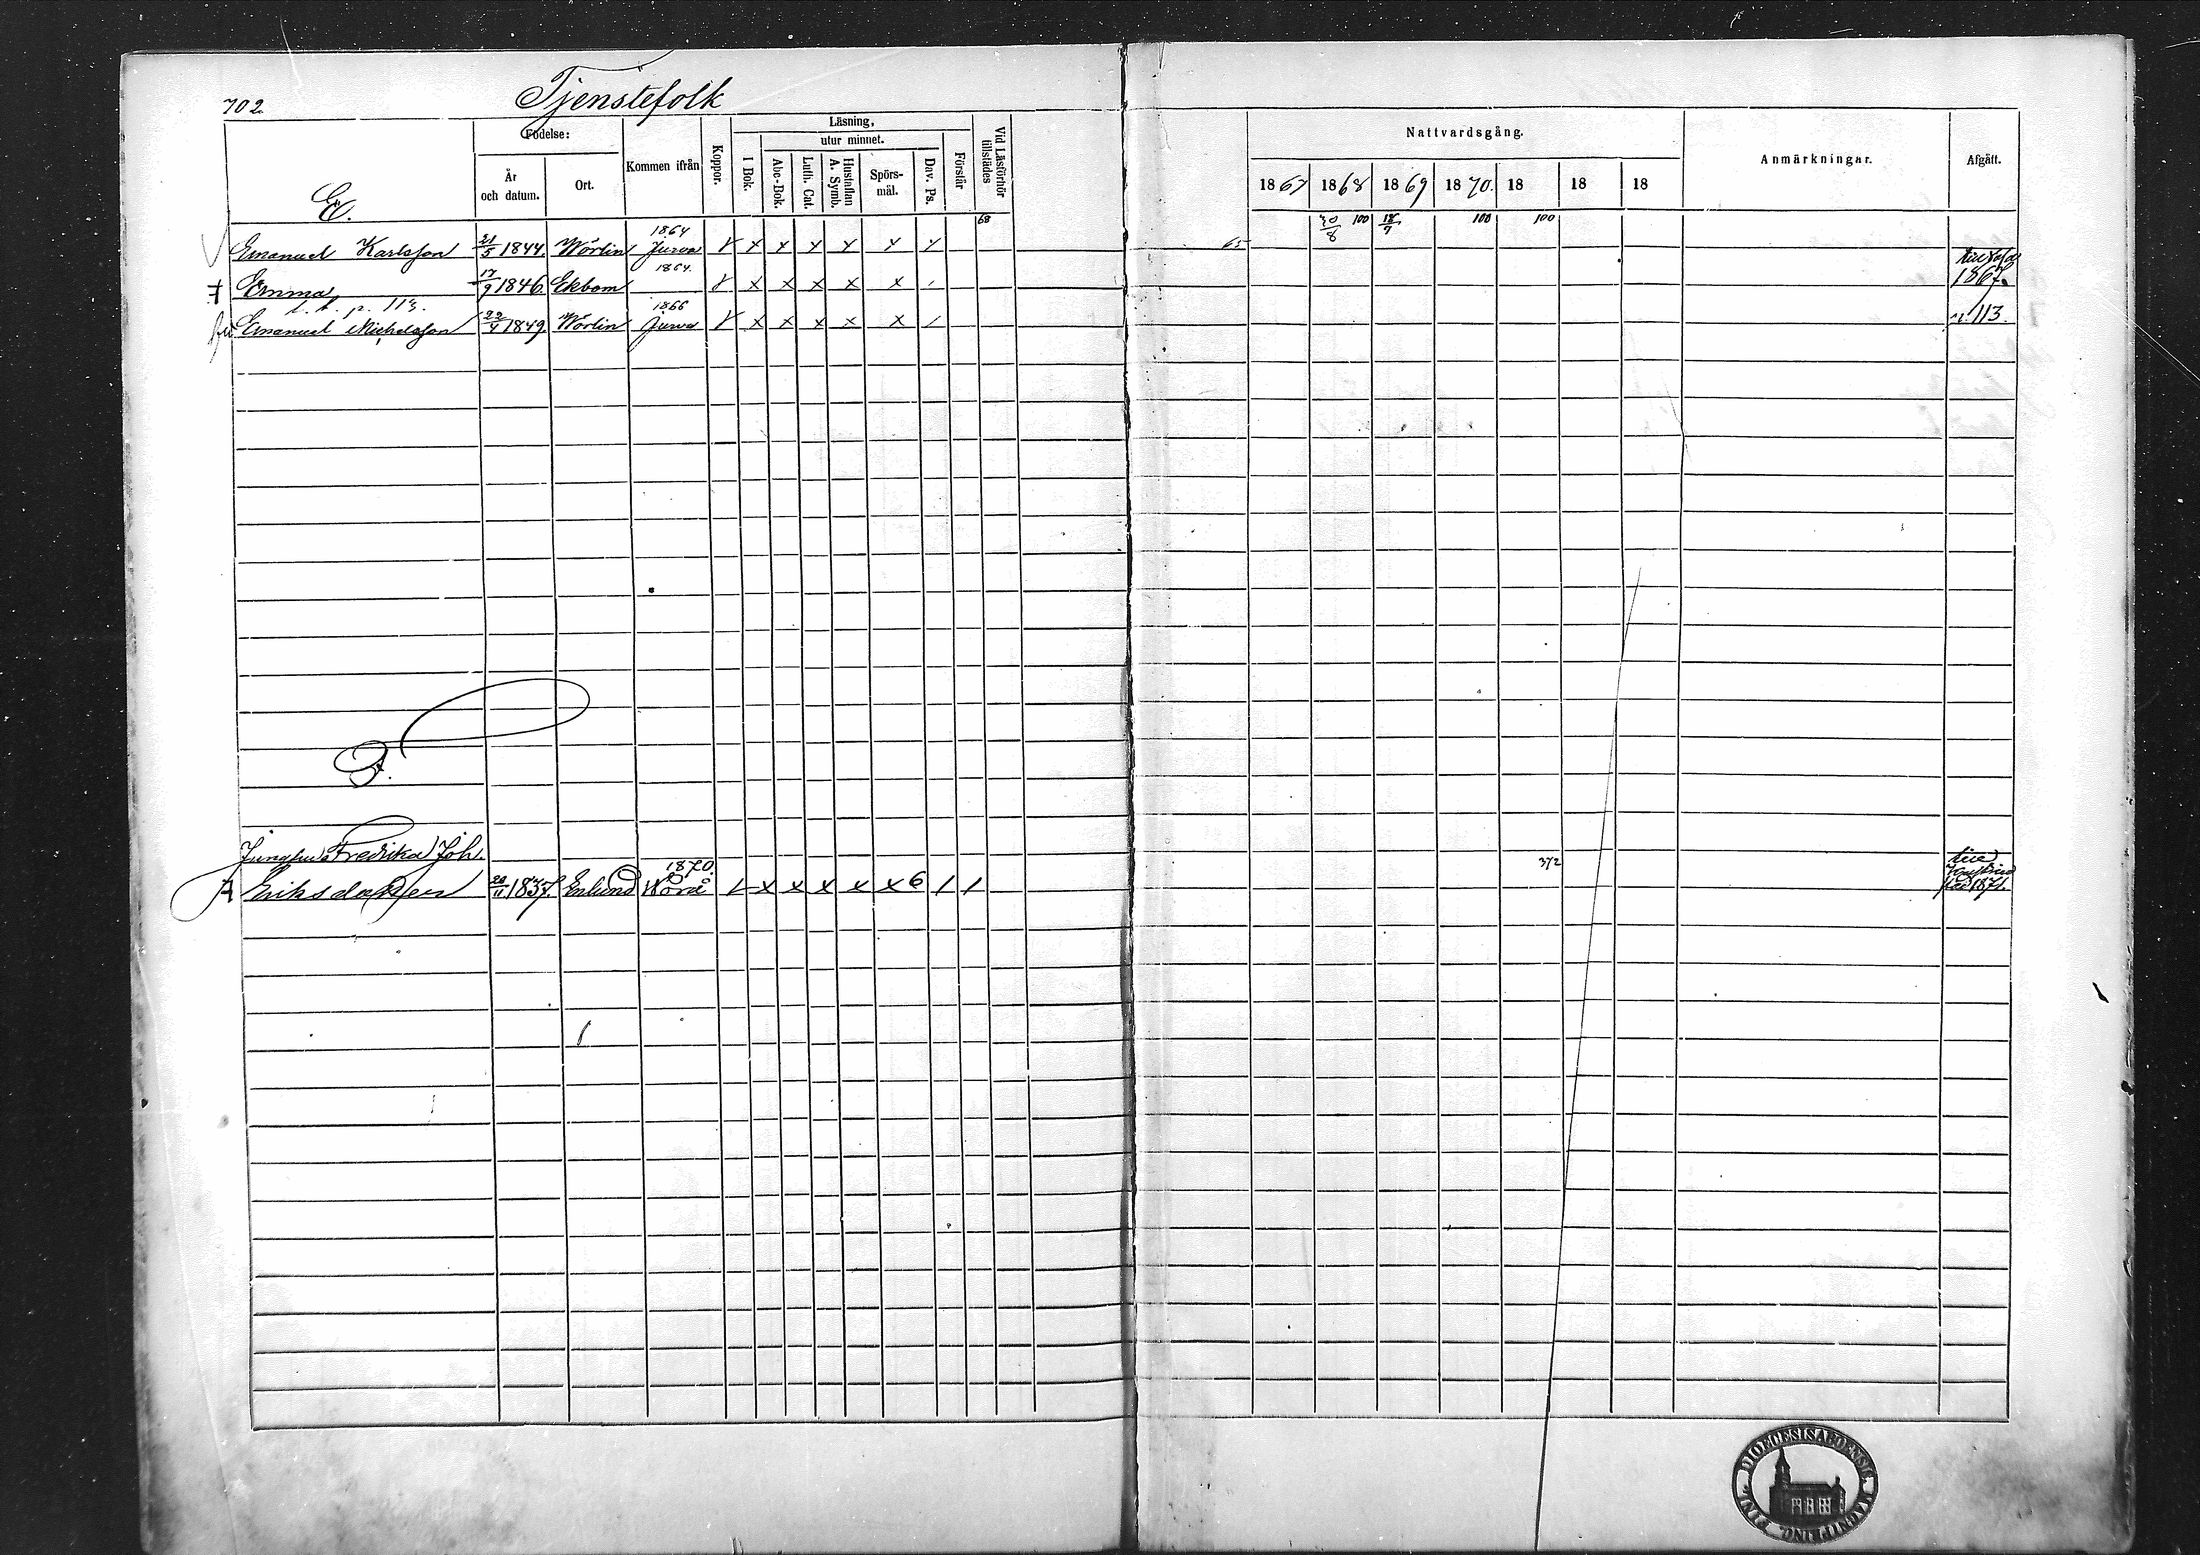 702.
Tjenstefolk
Födelse:
Läsning,
utur minnet.
År
och datum.
Ort.
Kommen ifrån
Koppor.
I Bok.
Abc-Bok.
Luth. Cat.
Hustaflan
A. Symb.
Spörs-
mål.
Dav. Ps.
Förstår
Vid Läsförhör
tillstädes
Nattvardsgång.
Anmärkningar.
Afgått.
1867 1868 1869 1870. 18 18 18
E.
68
30/8 100 18/7 100 100
1864
Emanuel Karlsson 21/5 1844. Wörlin Jurva x x x x x
65
1864.
Emma 17/9 1846 Ekbom x x x x x
1867.
p. 113.
1866
Emanuel Michelsson 22/4 1849 Wörlin Jurva x x x x x
p. 113.
F.
Jungfru Fredrika Joh.
1870.
372
Eriksdotter 20/11 1837. Enlund Wörå x x x x x 6 1 1
1871.
DIOECESIS ABOENSIS MAGNI PRINC. FINL.